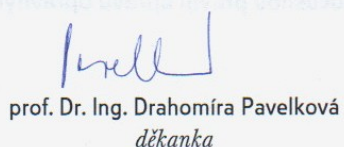 prof. Dr. Ing. Drahomíra Pavelková
děkanka